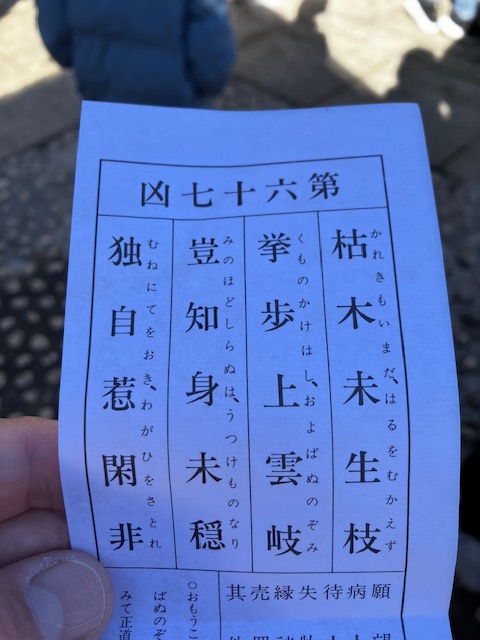 第六十七凶
枯木未生枝
かれきもいまだ、はるをむかえず
挙歩上雲岐
くものかけはし、およばぬのぞみ
豈知身未穏
みのほどしらぬは、うつけものなり
独自惹閑非
むねにてをおき、わがひをさとれ
願望
病
待
失
縁
売
其
○おもうこ
ばぬのぞ
みて正道